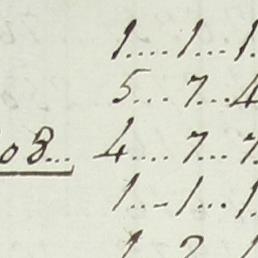 1....1...1.
5...7...4
08... 4....7...7
1...1...1.
1 2 1